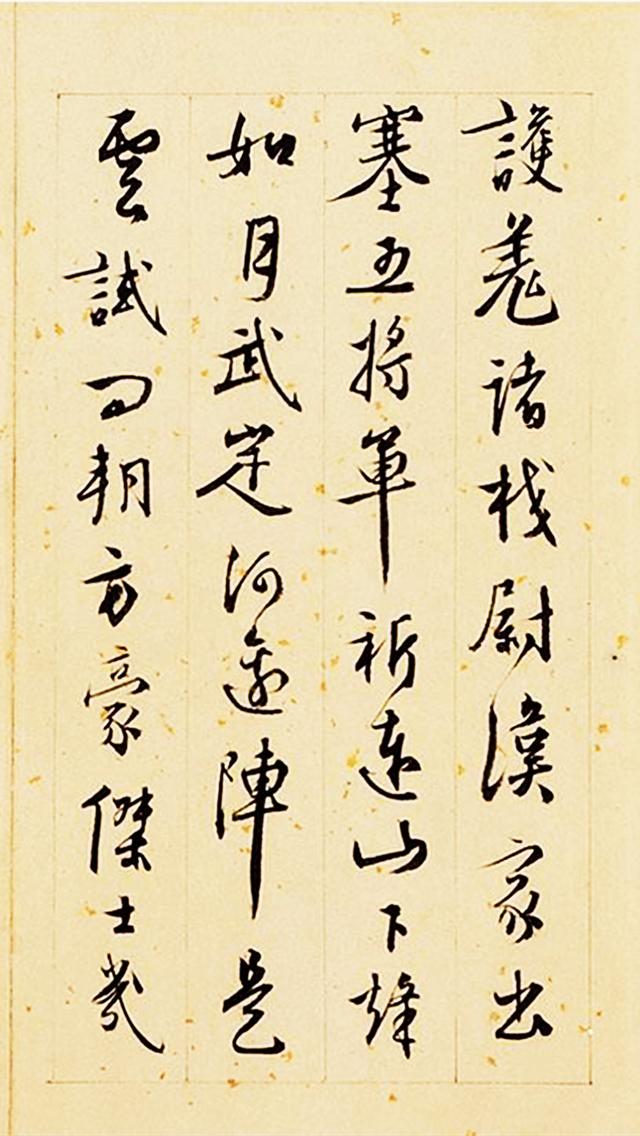 護羌諸校尉漢家出
塞五將軍祈連山下烽
如月武定河邊陣是
雲試問朔方豪傑士幾